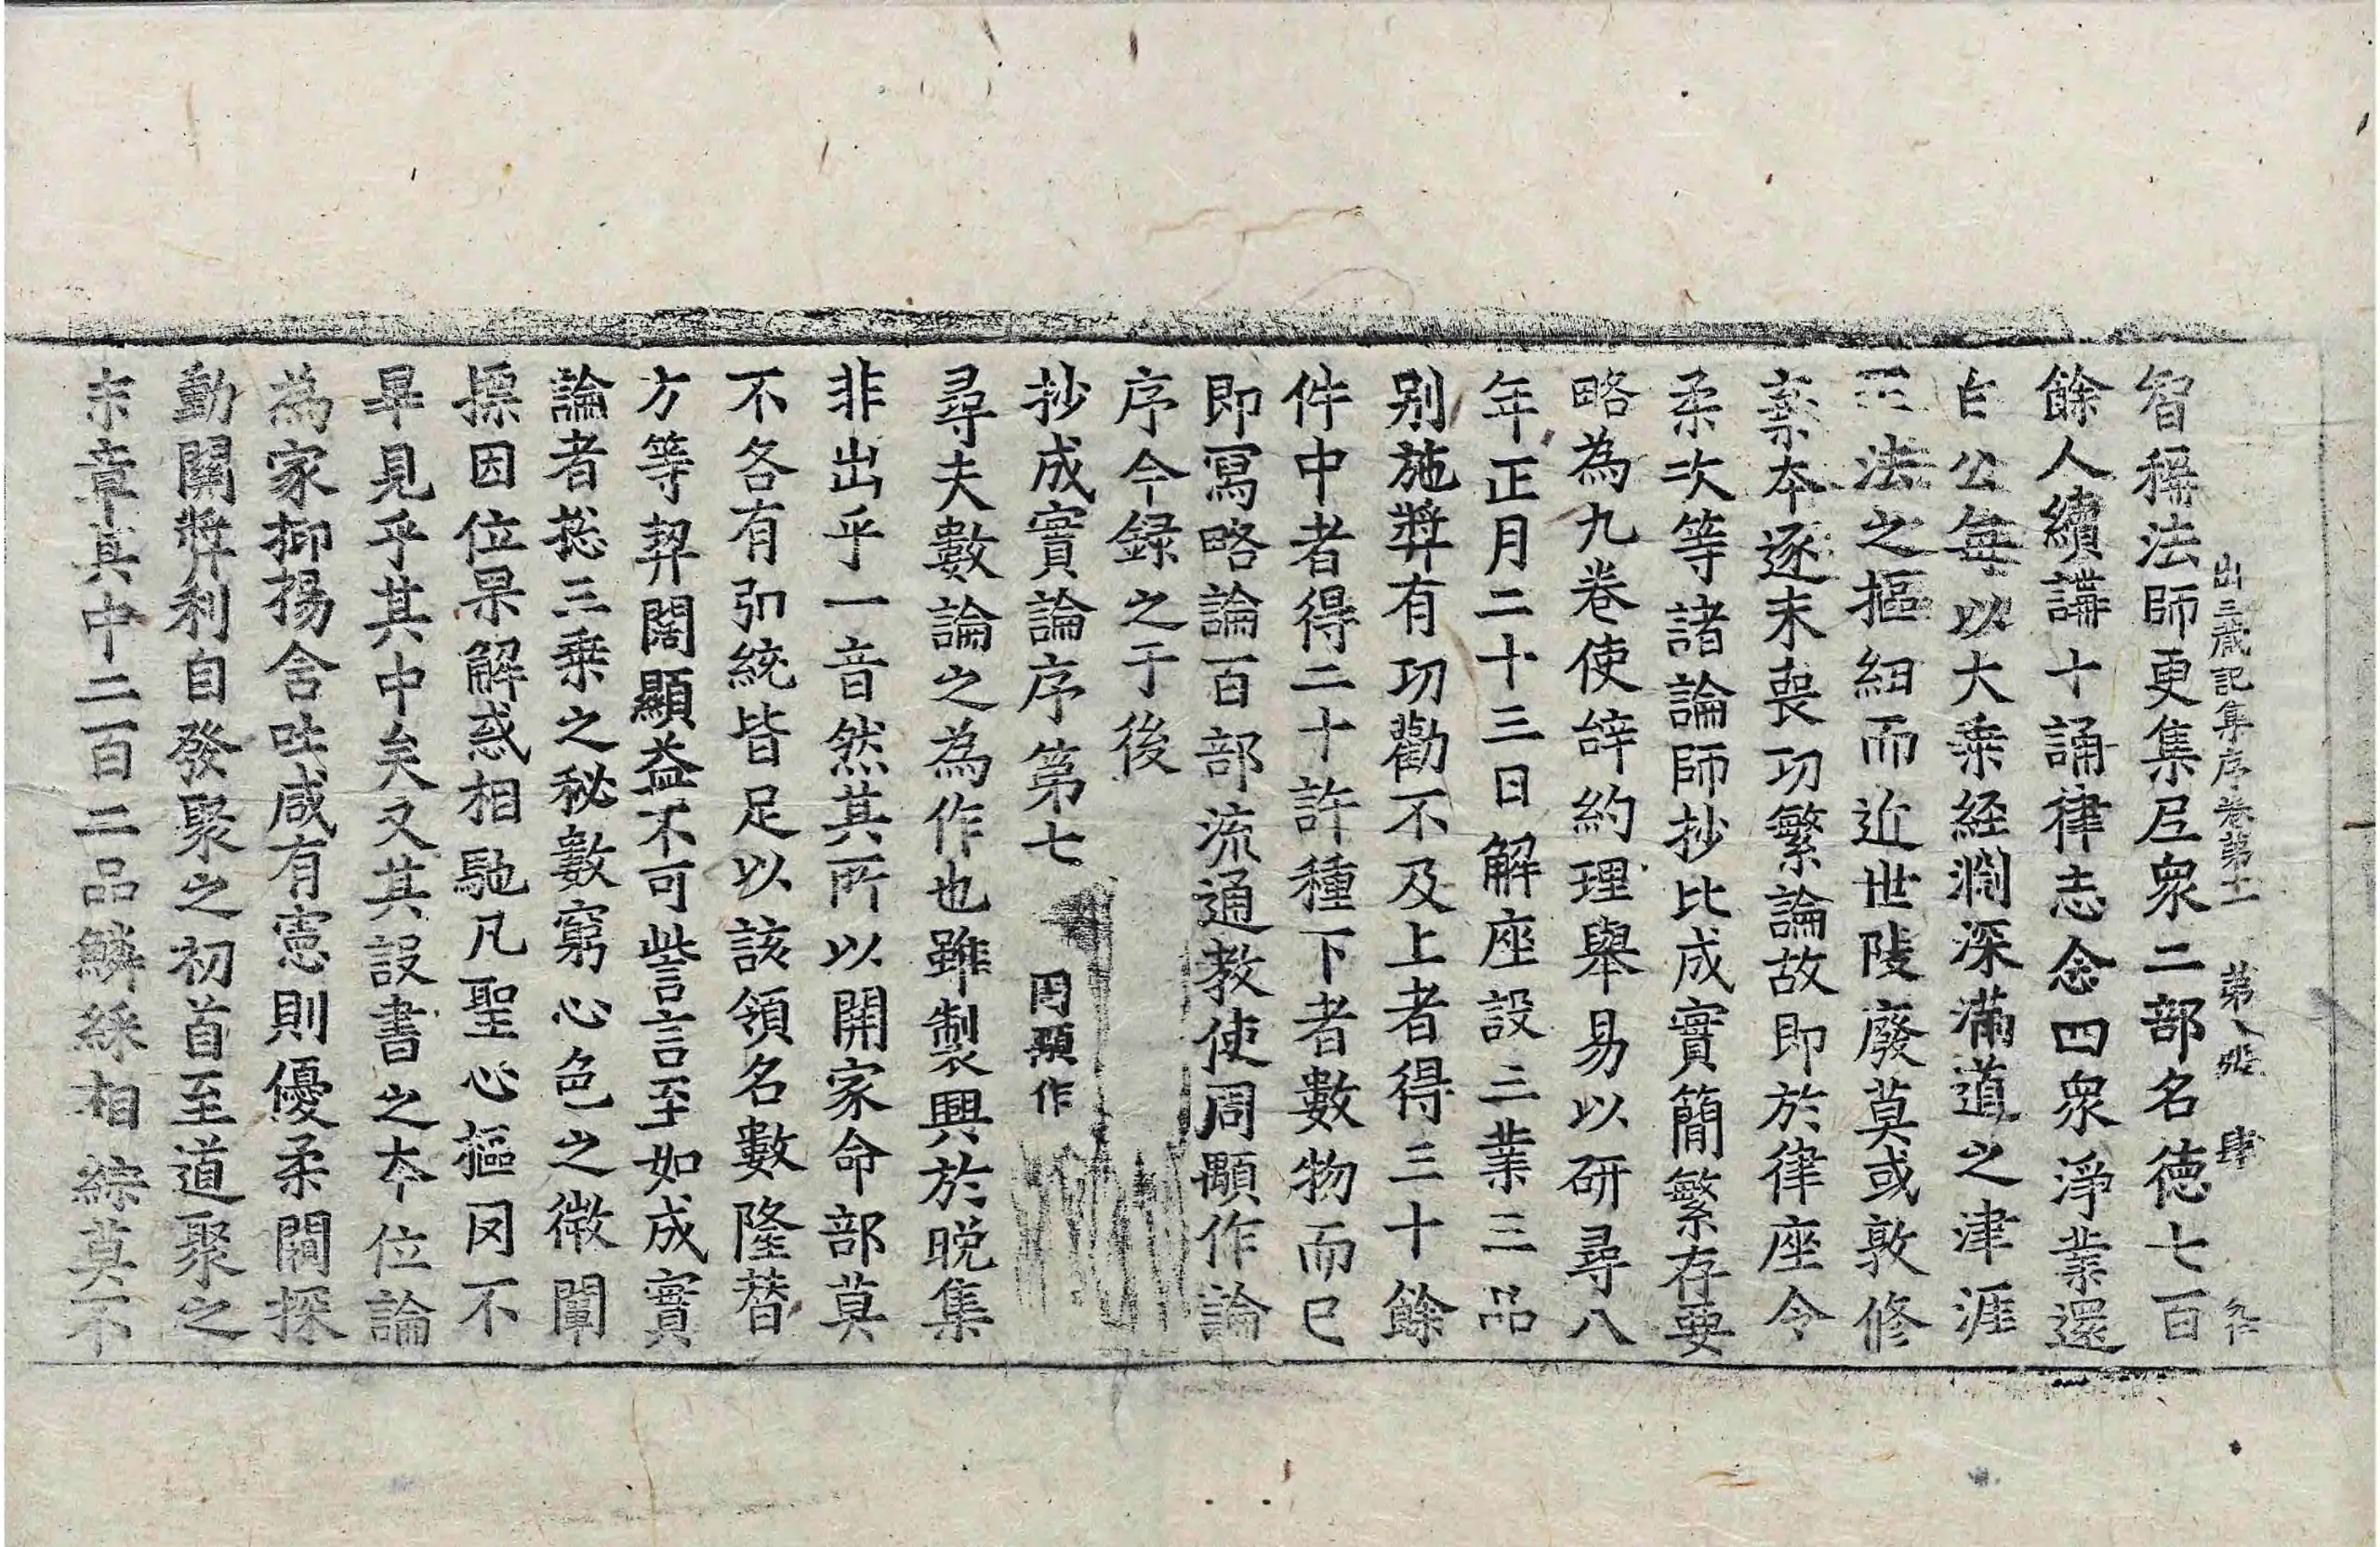 出三藏記集序卷第十一 第八張 肆
智稱法師更集尼衆二部名德七百
餘人續講十誦律志念四衆淨業還
白公每以大乗經淵深滿道之津涯
正法之摳紐而近世陵廢莫或敦修
棄本逐末喪功繁論故即於律座令
柔次等諸論師抄比成實簡繁存要
略為九卷使辝約理舉易以研尋八
年正月二十三日解座設三業三品
别施獎有功勸不及上者得三十餘
件中者得二十許種下者數物而已
即寫略論百部流通教使周顒作論
序今録之于後
抄成實論序第七 周顒作
尋夫數論之為作也雖製興於晚集
非出乎一音然其所以開家命部莫
不各有弘統皆足以該領名數隆替
方等契闊顯益不可訾言言至如成實
論者揔三乗之秘數窮心色之微闡
摽因位果解惑相馳凡聖心摳罔不
畢見乎其中矣又其設書之本位論
為家抑揚含吐咸有憲則優柔闊探
動關獘利自發聚之初首至道聚之
末章其中二百二品鱗綵相綜莫不